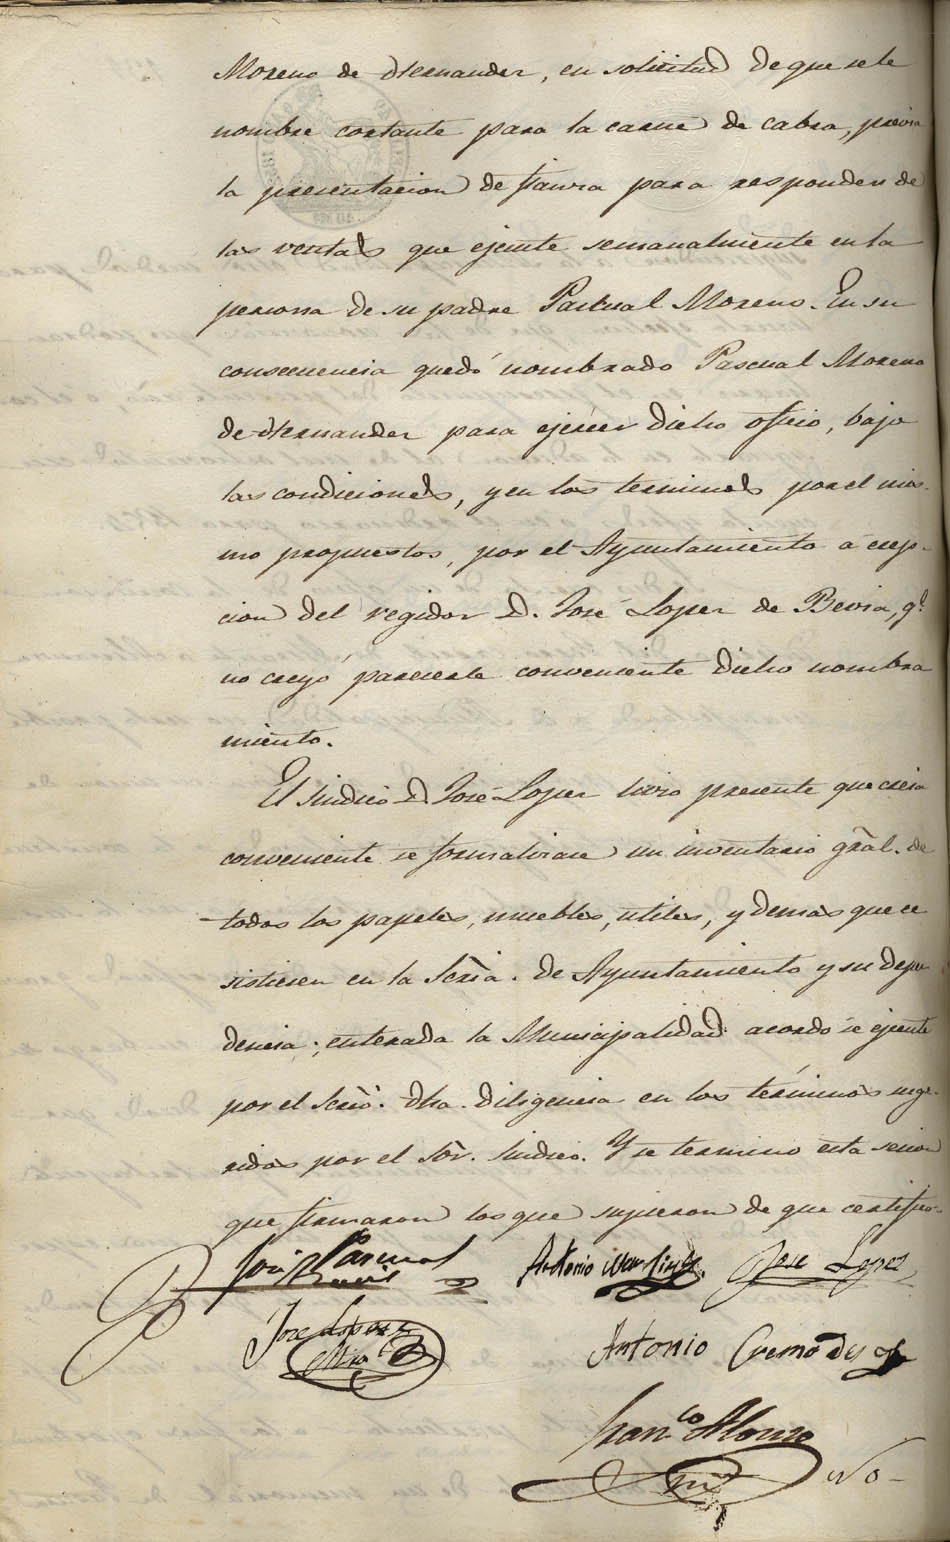 Moreno de Hernandez, en solicitud de que se le
nombre cortante para la carne de cabra, previa
la presentacion de fianza para responder de
las ventas que ejecute semanalmente en la
persona de su padre Pascual Moreno. En su
consecuencia quedó nombrado Pascual Moreno
de Hernandez para ejercer dicho oficio, bajo
las condiciones, y en los terminos por el mis-
mo propuestos, por el Ayuntamiento a ecep-
cion del regidor D. José Lopez de Bevia, q.e
no creyó parecerle conveniente dicho nombra
miento.
El Sindico D. José Lopez hizo presente que creia
conveniente se formalizase un inventario grãl. de
todos los papeles, muebles, utiles, y demas que ec
sistiesen en la Seria. de Ayuntamiento y su depen
dencia; enterada la Municipalidad acordó se ejecute
por el Serio. dha. diligencia en los términos suge-
ridos por el Sõr. Sindico. Y se termino esta sesion
que firmaron los que supieron de que certifico.
José Pascual
Antonio Martinez
Jose Lopez
Jose Lopez y
Mira
Antonio Cremades
Fran.co Alonso